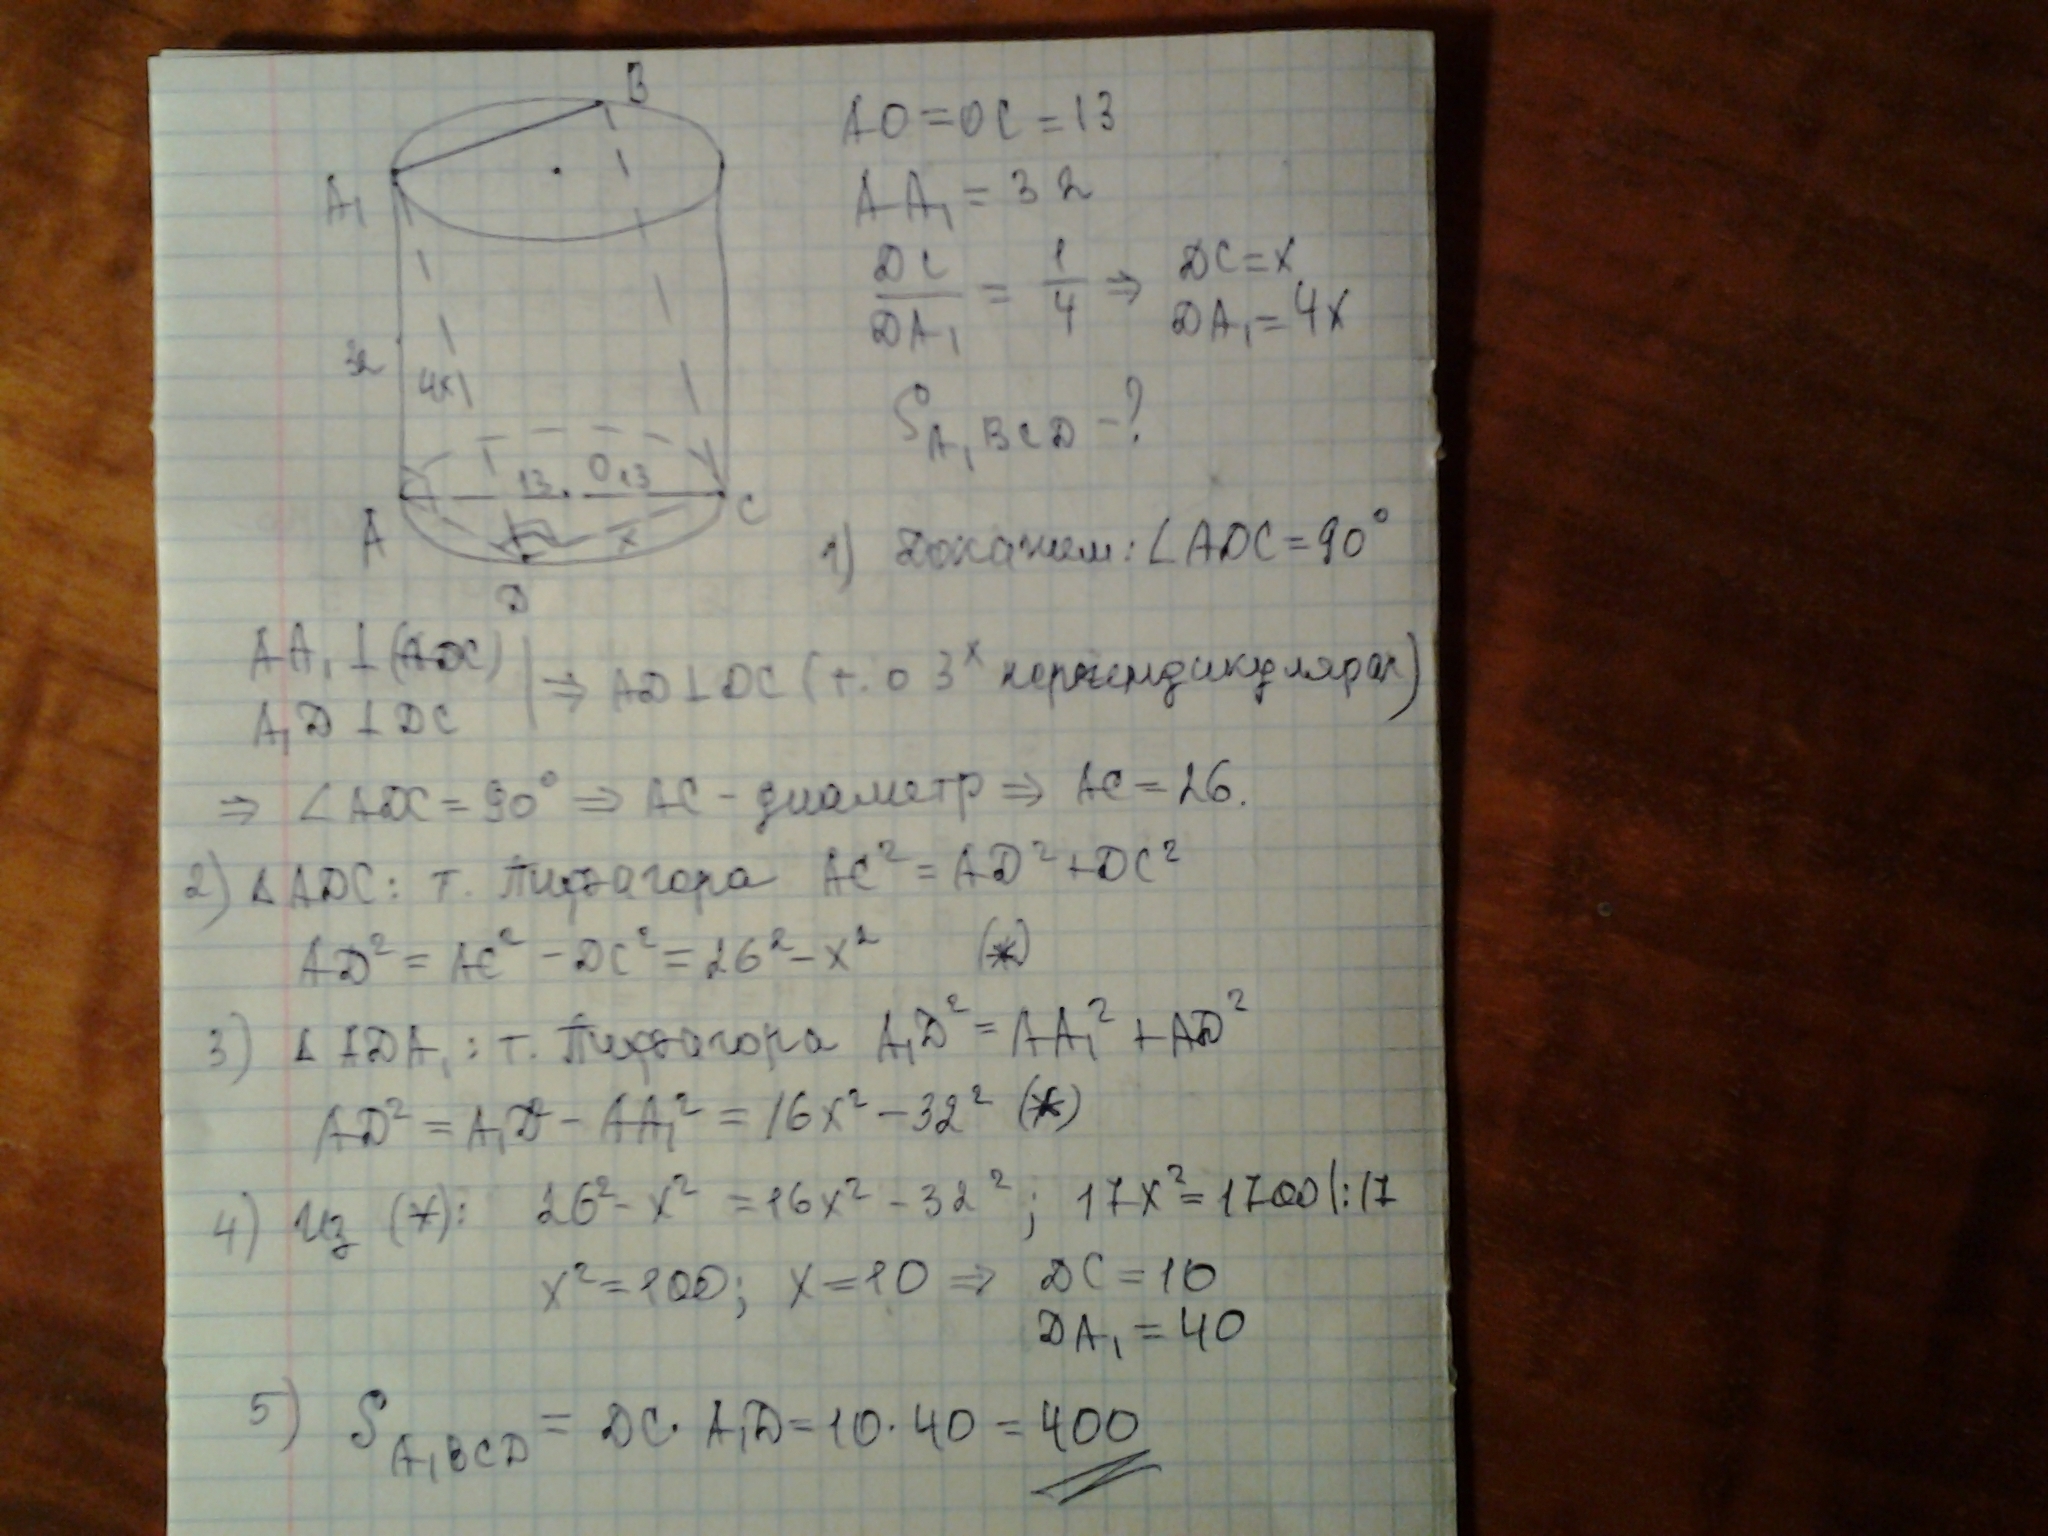 B
A₁
32
4x
13 O 13
A
C
x
D
AO = OC = 13
AA₁ = 32
DC/DA₁ = 1/4 ⇒ DC = x
DA₁ = 4x
S A₁BCD - ?
1) Докажем: ∠ADC = 90°
AA₁ ⊥ (ADC)
A₁D ⊥ DC
⇒ AD ⊥ DC (т. о 3ˣ перпендикулярах)
⇒ ∠ADC = 90° ⇒ AC - диаметр ⇒ AC = 26.
2) △ADC: т. Пифагора AC² = AD² + DC²
AD² = AC² - DC² = 26² - x² (*)
3) △ADA₁: т. Пифагора A₁D² = AA₁² + AD²
AD² = A₁D² - AA₁² = 16x² - 32² (*)
4) Из (*): 26² - x² = 16x² - 32²; 17x² = 1700 |:17
x² = 100; x = 10 ⇒ DC = 10
DA₁ = 40
5) S A₁BCD = DC · A₁D = 10 · 40 = 400